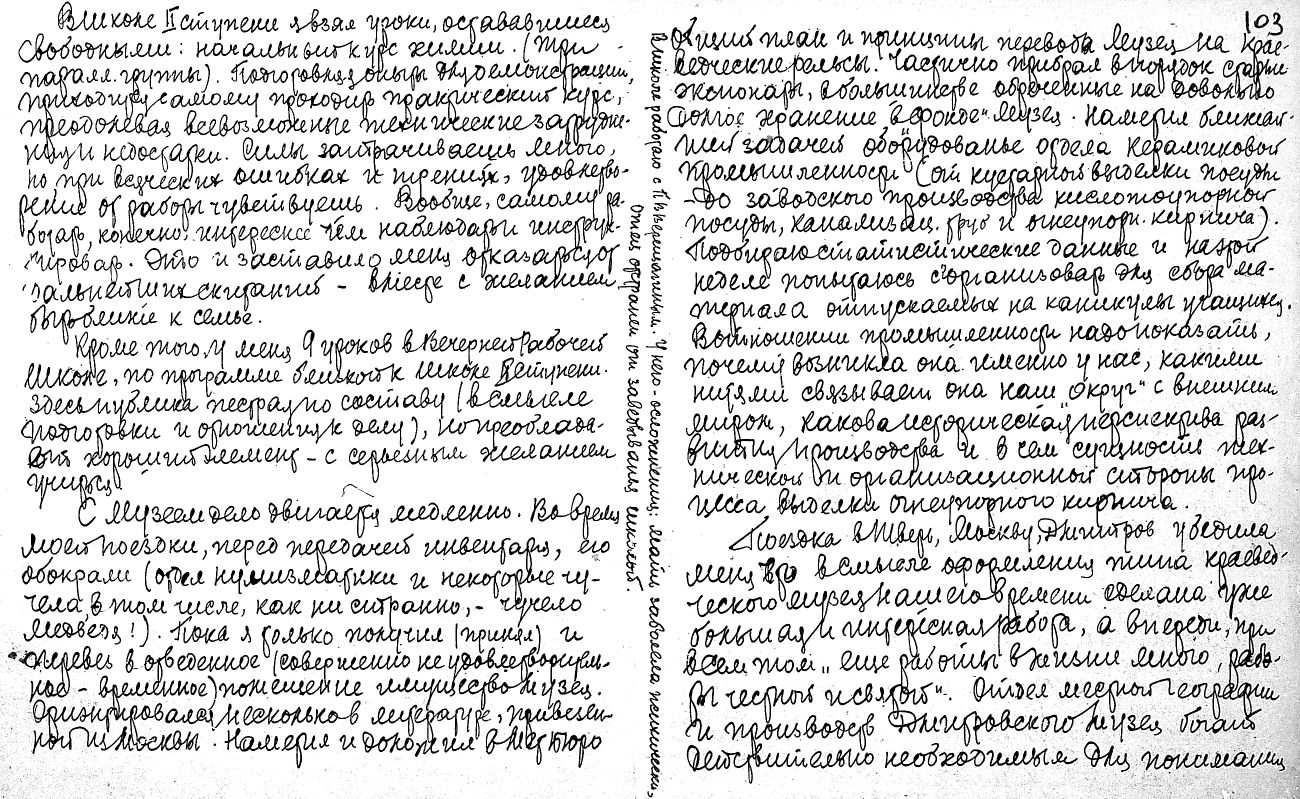 В школе II ступени я взял уроки, остававшиеся
свободными: начальный курс химии. (Три
паралл. группы). Подготовляя опыты для демонстрации,
приходится самому проходить практический курс,
преодолевая всевозможные технические затрудне-
ния и недостатки. Силы затрачиваешь много,
но, при всяческих ошибках и трениях, удовлетво-
рение от работы чувствуешь. Вообще, самому ра-
ботать, конечно, интереснее чем наблюдать и инструк-
тировать. Это и заставило меня отказаться от
дальнейших скитаний – вместе с желанием
быть ближе к семье.
Кроме того, у меня 9 уроков в Вечерней Рабочей
Школе, по программе близкой к школе II ступени.
Здесь публика пестрая по составу (в смысле
подготовки и отношения к делу), но преоблада-
ет хороший элемент – с серьезным желанием
учиться.
С Музеем дело двигается медленно. Во время
моей поездки, перед передачей инвентаря, его
обокрали (отдел нумизматики и некоторые чу-
чела, в том числе, как ни странно, – чучело
медведя!). Пока я только получил (принял) и
перевез в отведенное (совершенно неудовлетворитель-
ное – временное) помещение имущество Музея.
Ориентировался несколько в литературе, привезен-
ной из Москвы. Наметил и доложил в
В школе работаю с П. У него – осложнения: мать заболела психически,
отец отстранен от заведыванья школой.
103
Общий план и принципы перевода Музея на крае-
ведческие рельсы. Частично прибрал в порядок старые
экспонаты, в большинстве обреченные на довольно
долгое хранение в „фонде" Музея. Наметил ближай-
шей задачей оборудованье отдела керамиковой
промышленности (от кустарной выделки посуды
– до заводского производства кислотоупорной
посуды, канализац. труб и огнеупорн. кирпича).
Подбираю статистические данные и на этой
неделе попытаюсь сорганизовать для сбора ма-
териала отпускаемых на каникулы учащихся.
В отношении промышленности надо показать,
почему возникла она именно у нас, какими
нитями связывает она наш „округ" с внешним
миром, какова историческая перспектива раз-
вития производства и в чем сущность тех-
нической и организационной стороны про-
цесса выделки огнеупорного кирпича.
Поездка в Тверь, Москву, Дмитров убедила
меня что в смысле оформления типа краевед-
ческого музея нашего времени сделана уже
большая и интересная работа, а впереди, при
всем том „еще работы в жизни много, рабо-
ты честной и святой". Отдел местной географии
и производств Дмитровского Музея богат
действительно необходимым для понимания